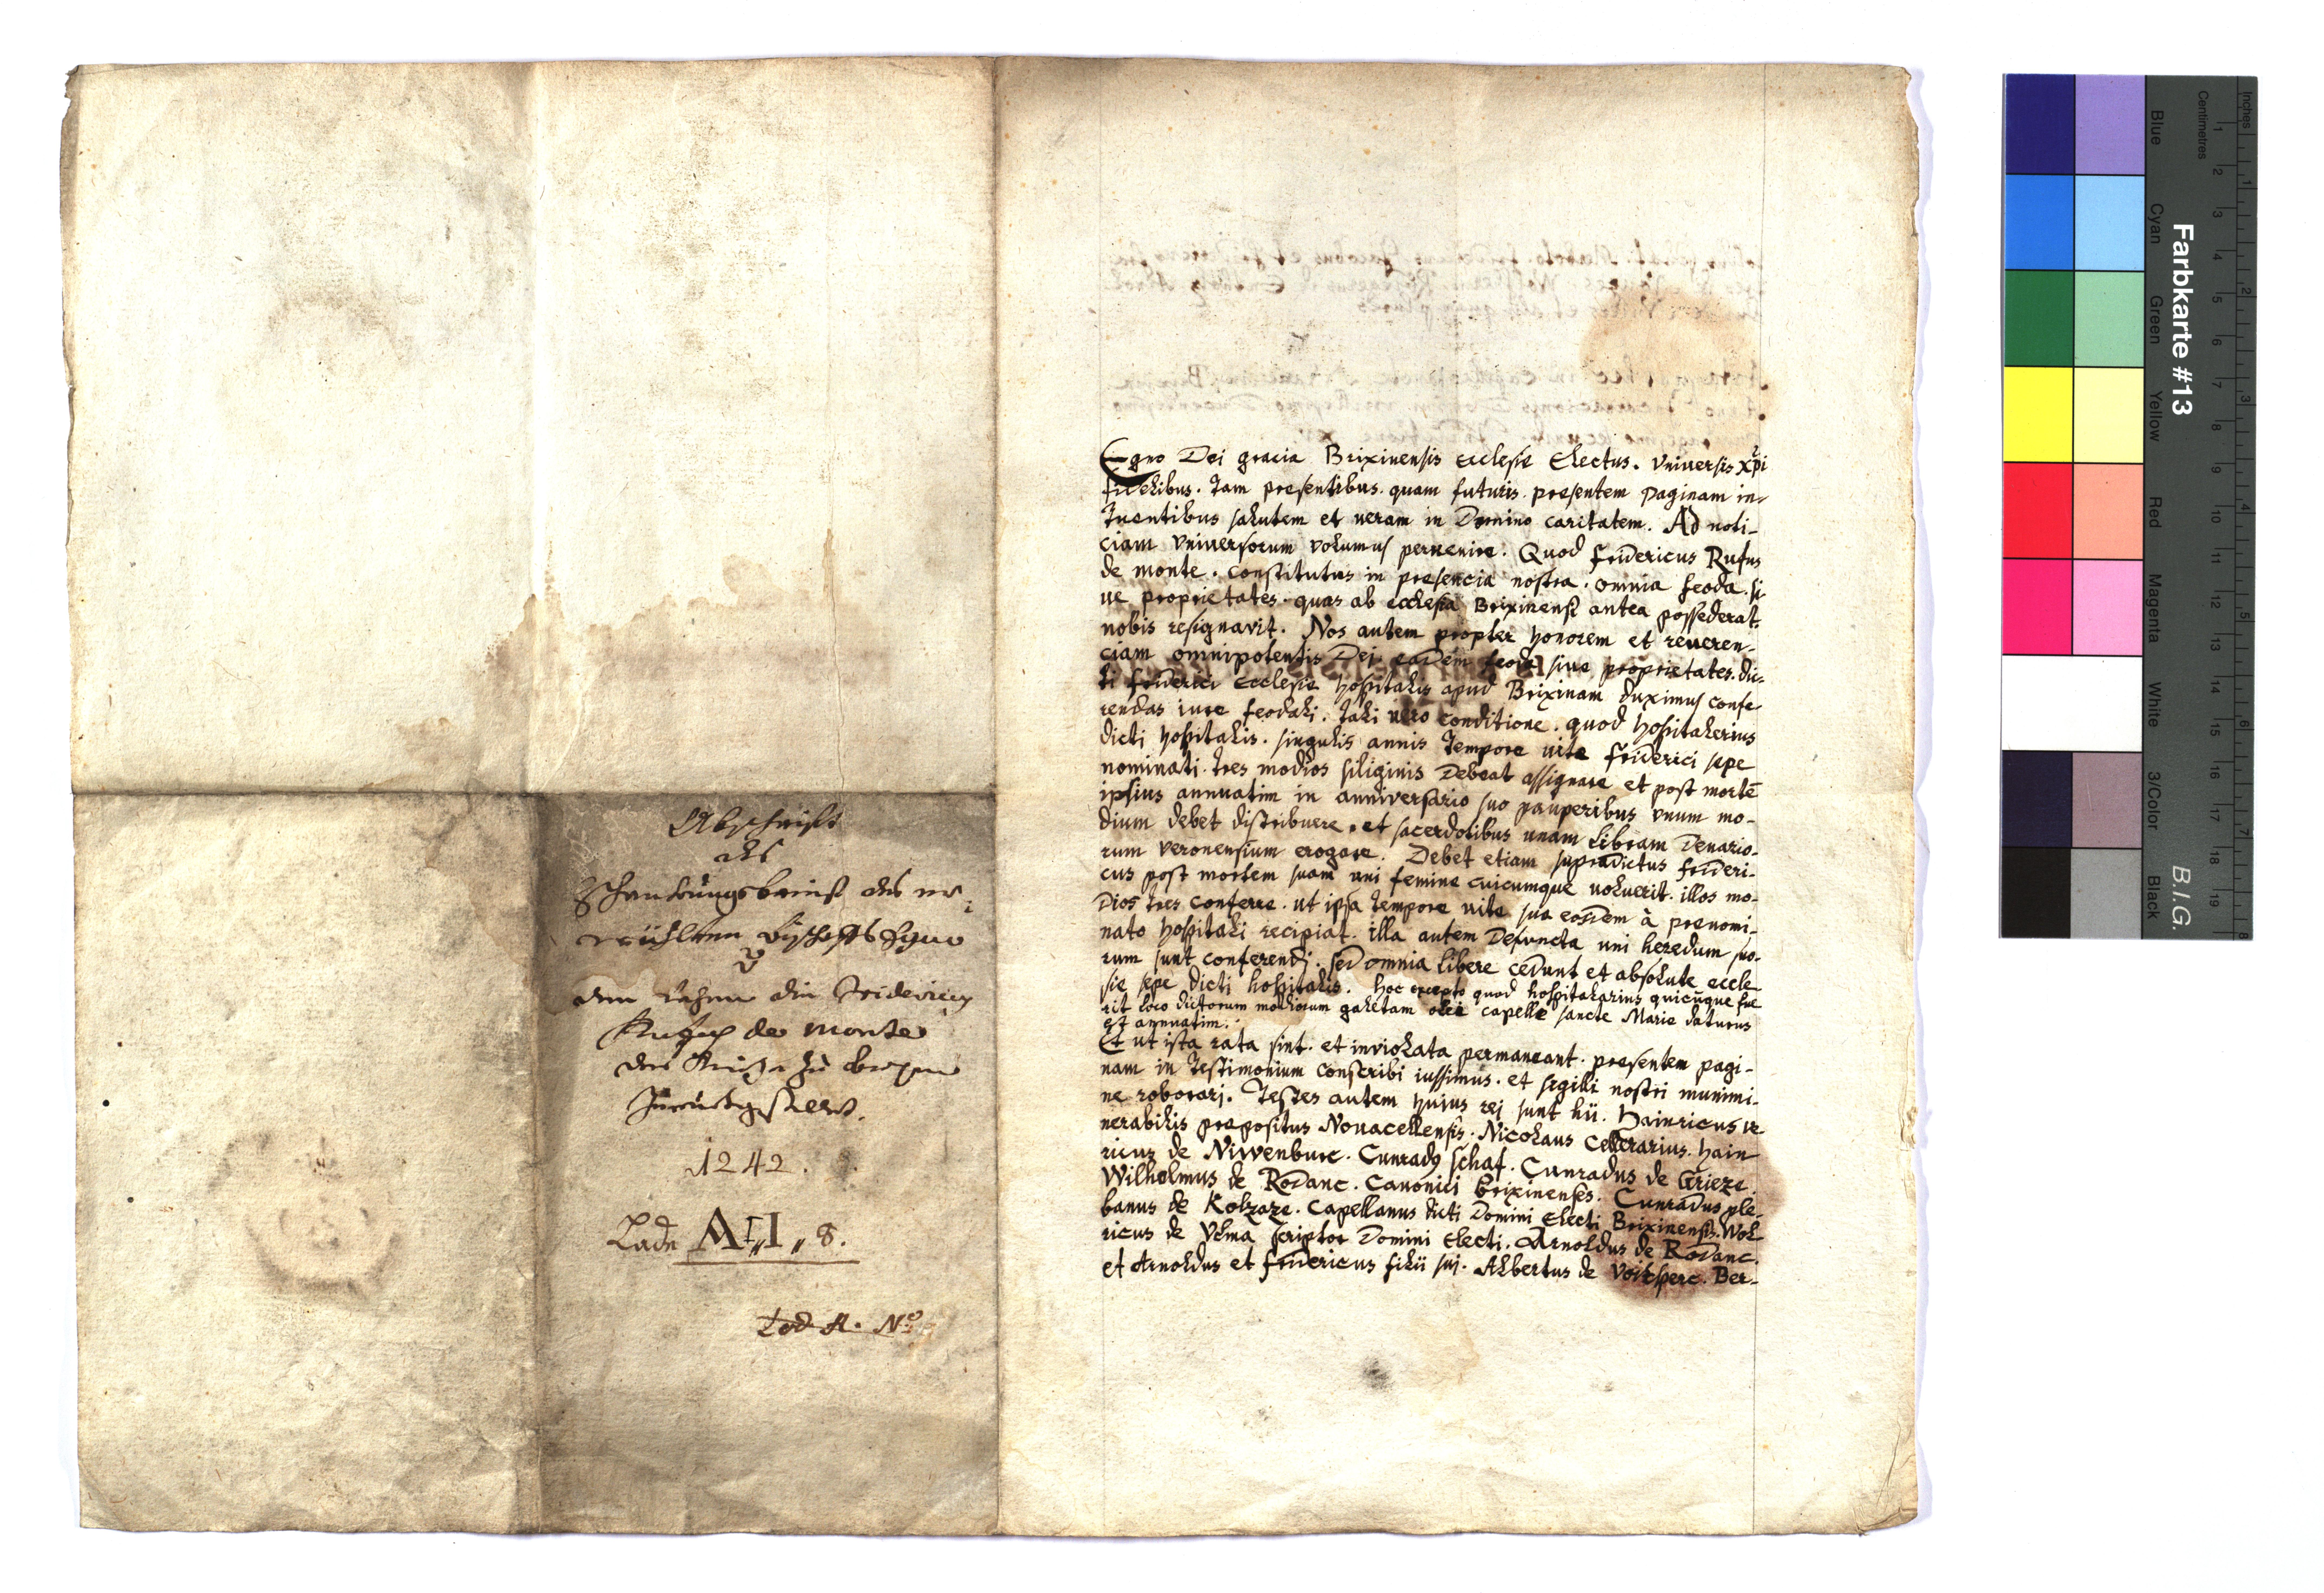 Abschrift
des
Schankungsbrief des er-
wählten Bischoffs Egno
den Lehen die Fridericus
Rufus de Monte
der Kirche zu Brixen
zurückgestellt.
1242.
Lade A I „ 8.
Lad A. No
Egno Dei gracia Brixinensis ecclesie Electus. Vniuersis Xpi
fidelibus. tam presentibus. quam futuris. presentem paginam in-
tuentibus salutem et veram in Domino caritatem. Ad noti-
ciam Vniuersorum volumus peruenire. Quod fridericus Rufus
de monte. constitutus in presencia nostra. omnia feoda. si-
ue proprietates. quas ab ecclesia Brixinensi antea possederat.
nobis resignavit. Nos autem propter honorem et reueren-
ciam omnipotentis Dei eadem feoda siue proprietates. dic-
ti friderici Ecclesie hospitalis apud Brixinam duximus confe-
rendas iure feodali. tali uero conditione. quod hospitalerius
dicti hospitalis. singulis annis tempore uite friderici sepe
nominati. tres modios siliginis debeat assignare et post mortē
ipsius annuatim in anniversario suo pauperibus vnum mo-
dium debet distribuere. et sacerdotibus unam libram denario-
rum veronensium erogare. Debet etiam supradictus frideri-
cus post mortem suam uni femine cuicumque uoluerit. illos mo-
dios tres conferre. ut ipsa tempore uite sue eosdem à prenomi-
nato hospitali recipiat. illa autem defuncta uni heredum suo-
rum sunt conferendi. sed omnia libere cedunt et absolute eccle
sie sepe dicti hospitalis. Hoc excepto quod hospitalarius quicūque fue
rit loco dictorum modiorum galetam olei capelle sancte Marie daturus
est annuatim.
Et ut ista rata sint. et inviolata permaneant. presentem pagi-
nam in testimonium conscribi iussimus. et sigilli nostri munimi-
ne roborari. Testes autem huius rei sunt hii. Hainricus ve
nerabilis prepositus Nouacellensis. Nicolaus Cellerarius. Hain
ricus de Niwenburc. Cunradus schaf. Cunradus de Grieze.
Wilhelmus de Rodanc. Canonici Brixinenses. Cunradus ple-
banus de Kolzaze. Capellanus dicti Domini Electi Brixinensis. Wol
ricus de Velma scriptor Domini Electi. Arnoldus de Rodanc.
et Arnoldus et fridericus filii sui. Albertus de Voitsperc. Ber-
Farbkarte #13
B.I.G.
Inches
Centimetres
Blue
Cyan
Green
Yellow
Red
Magenta
White
3/Color
Black